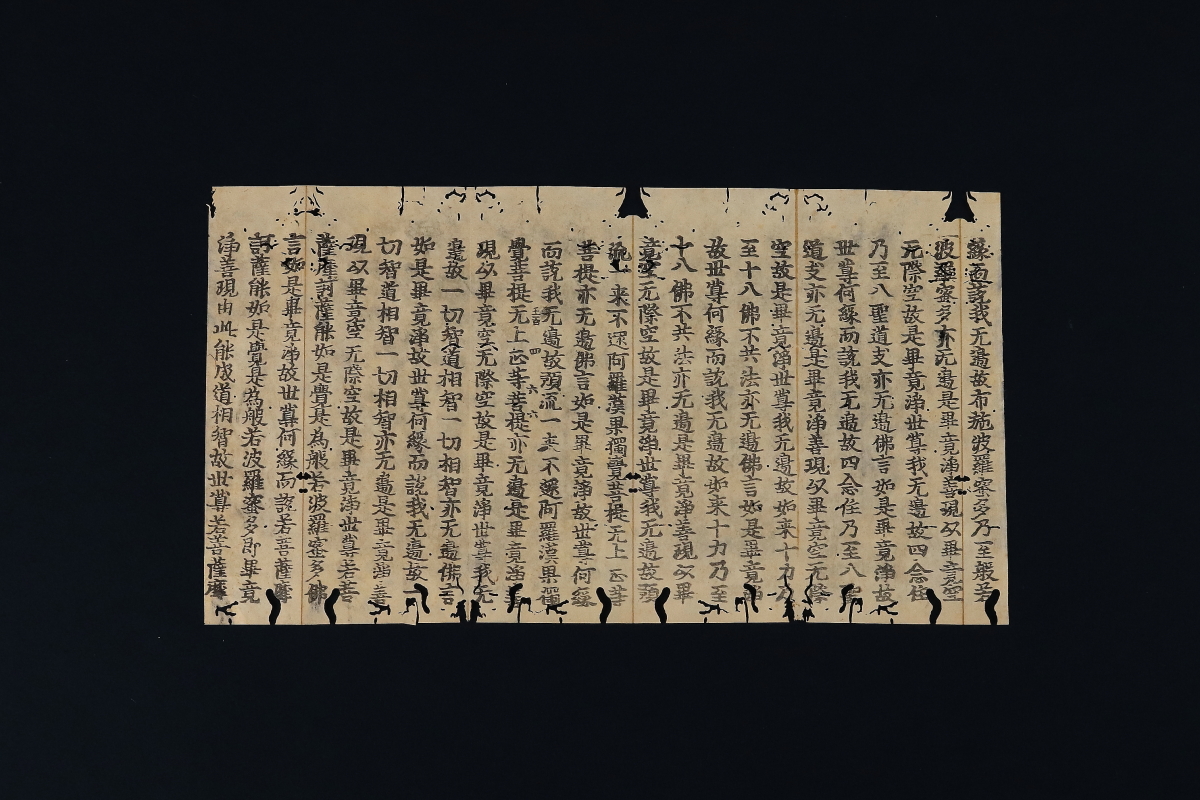 緣而說我无邊故布施波羅蜜多乃至般若
波羅蜜多亦无邊是畢竟淨善現以畢竟空
无際空故是畢竟淨世尊我无邊故四念住
乃至八聖道支亦无邊佛言如是畢竟淨故
世尊何緣而說我无邊故四念住乃至八聖
道支亦无邊是畢竟淨善現以畢竟空无際
空故是畢竟淨世尊我无邊故如来十力乃
至十八佛不共法亦无邊佛言如是畢竟淨
故世尊何緣而說我无邊故如来十力乃至
十八佛不共法亦无邊是畢竟淨善現以畢
竟空无際空故是畢竟淨世尊我无邊故預
流一来不還阿羅漢果獨覺菩提无上正等
菩提亦无邊佛言如是畢竟淨故世尊何緣
而說我无邊故預流一来不還阿羅漢果獨
二百 四 六 六
覺菩提无上正等菩提亦无邊是畢竟淨善
現以畢竟空无際空故是畢竟淨世尊我无
邊故一切智道相智一切相智亦无邊佛言
如是畢竟淨故世尊何緣而說我无邊故一
切智道相智一切相智亦无邊是畢竟淨善
現以畢竟空无際空故是畢竟淨世尊若菩
薩摩訶薩能如是覺是為般若波羅蜜多佛
言如是畢竟淨故世尊何緣而說若菩薩摩
訶薩能如是覺是為般若波羅蜜多即畢竟
淨善現由此能成道相智故世尊若菩薩摩